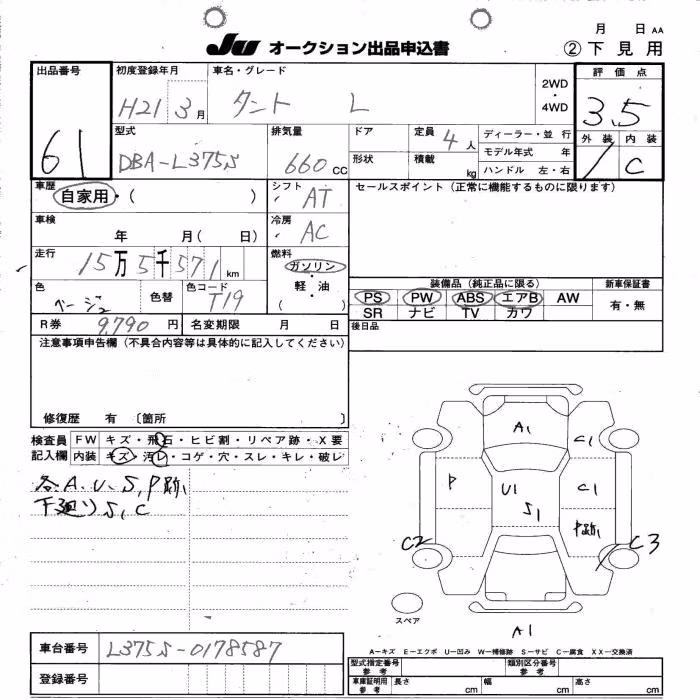 月 日 AA
JU オークション出品申込書 ②下見用
出品番号 初度登録年月 車名・グレード 評価点
61 H21 3月 タント L 2WD・4WD 3.5
型式 排気量 ドア 定員 4人 ディーラー・並行 外装 内装
DBA-L375S 660cc 形状 積載 kg モデル年式 年 C
ハンドル 左・右
車歴 自家用・( ) シフト AT セールスポイント(正常に機能するものに限ります)
車検 年 月( 日) 冷房 AC
走行 15万5千571km 燃料 ガソリン・軽油 ( )
色 ベージュ 色替 色コード T19 装備品(純正品に限る) 新車保証書
PS PW ABS エアB AW 有・無
SR ナビ TV カワ
R券 9,790円 名変期限 月 日 後日品
注意事項申告欄(不具合内容等は具体的に記入してください)
修復歴 有 〔箇所 〕
検査員 FW キズ・飛石・ヒビ割・リペア跡・X要
記入欄 内装 キズ・汚レ・コゲ・穴・スレ・キレ・破レ
各A、U、S、P跡、
下廻りS、C
A1 C1
P U1 C1
S1 P跡1
C2 C3
スペア
A1
A-キズ E-エクボ U-凹み W-補修跡 S-サビ C-腐食 XX-交換済
車台番号 L375S-0178587
型式指定番号 参考 類別区分番号 参考
登録番号 車庫証明用 参考 長さ cm 幅 cm 高さ cm